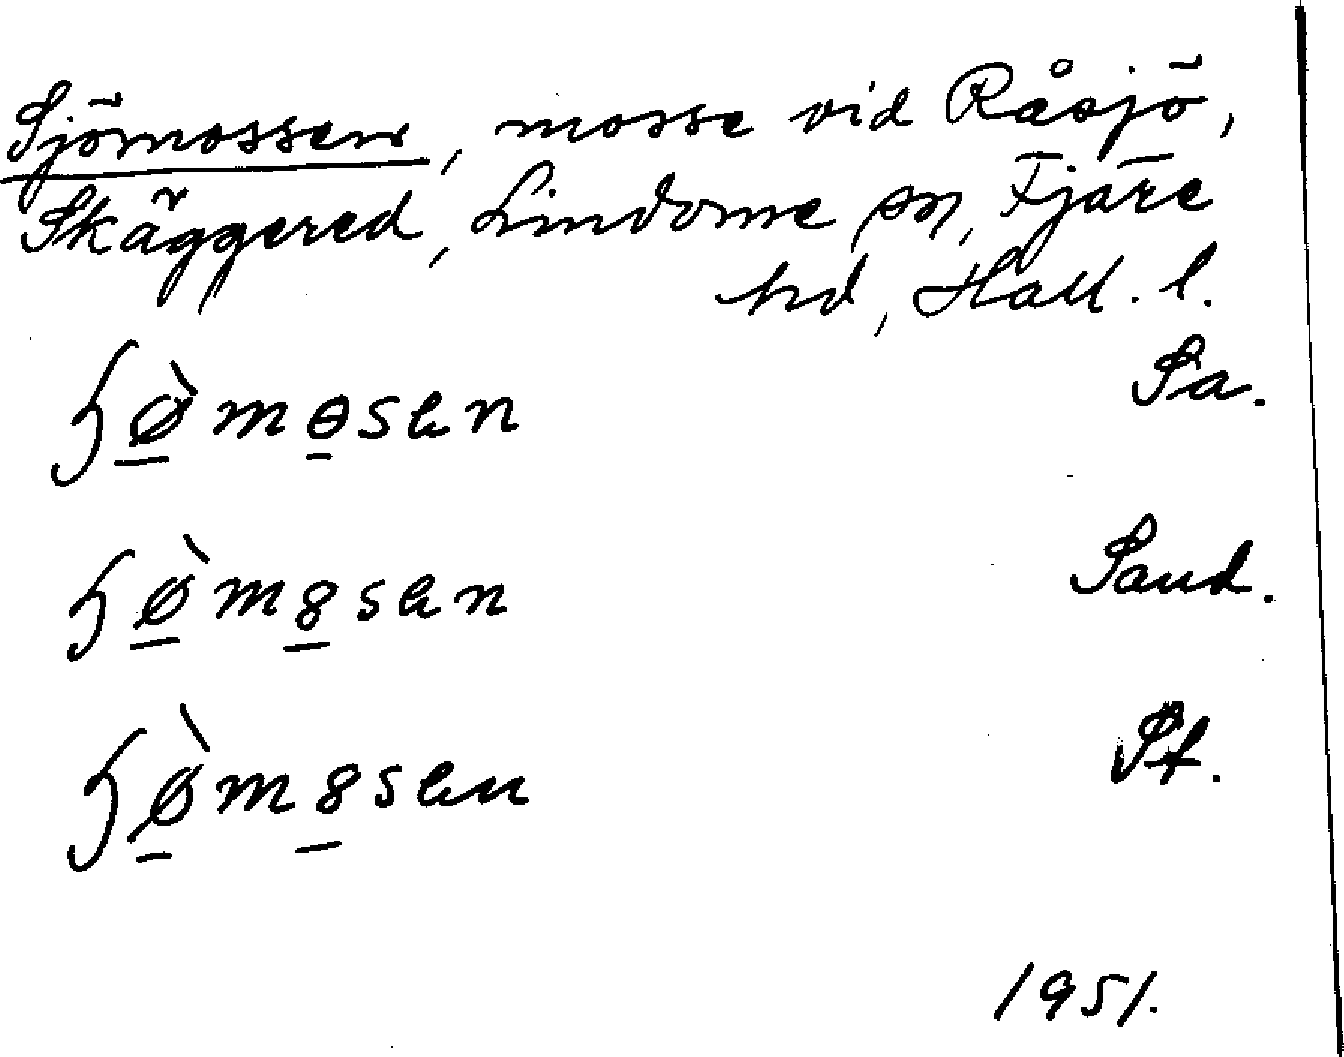 Sjömossen, mosse vid Råsjö,
Skäggered, Lindome sn, Fjäre
hd, Hall. l.
ɧø̠̀mɵ̠sen Sa.
ɧø̠̀m8̠sen Sand.
ɧø̠̀m8̠sen St.
1951.